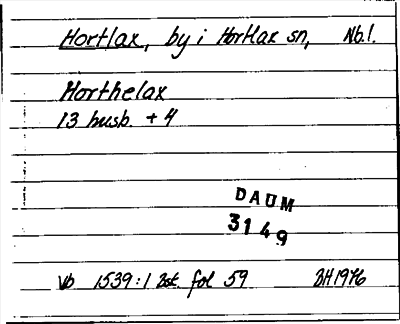 Hortlax, by i Hortlax sn, Nb.l.
Horthelax
13 husb. + 4
DAUM
3149
Vb 1539:1 2st. fol 59 BH 1976